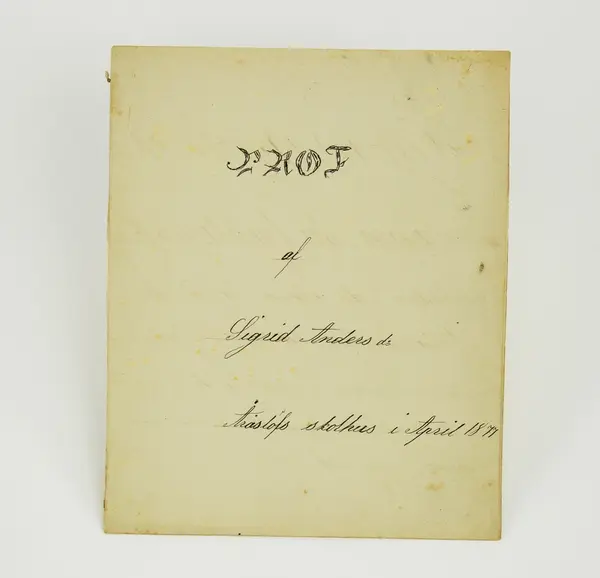 PROF
af
Sigrid Anders dr
Åraslöfs skolhus i April 1877